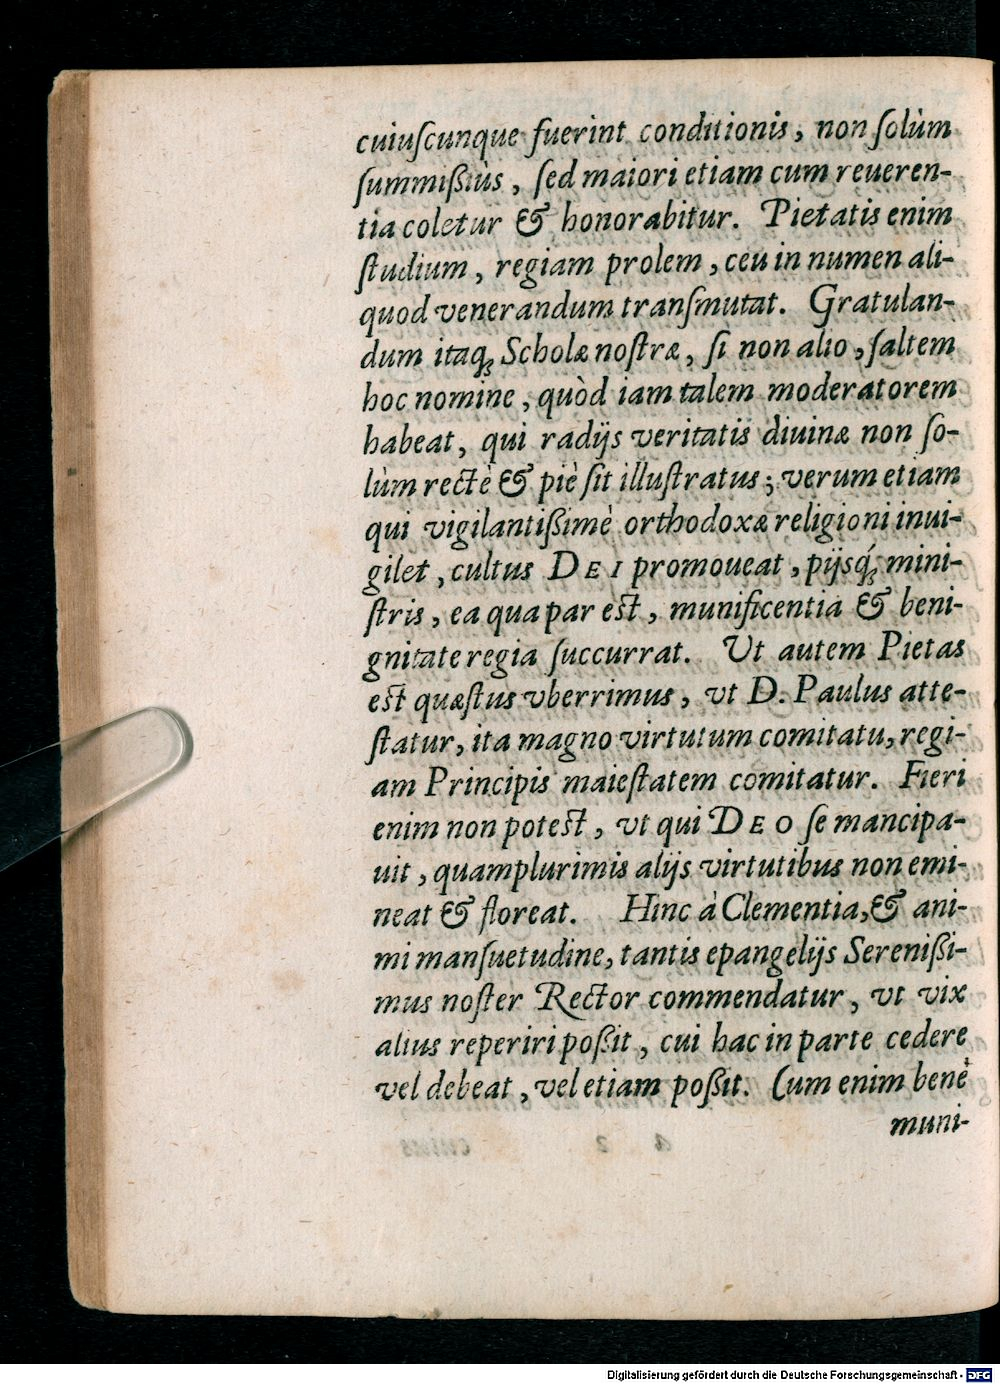 cuiuſcunque fuerint conditionis, non ſolùm
ſummißiùs, ſed maiori etiam cum reueren-
tia coletur & honorabitur. Pietatis enim
ſtudium, regiam prolem, ceu in numen ali-
quod venerandum tranſmutat. Gratulan-
dum itaq; Scholæ noſtræ, ſi non alio, ſaltem
hoc nomine, quòd iam talem moderatorem
habeat, qui radijs veritatis diuinæ non ſo-
lùm rectè & piè ſit illuſtratus; verum etiam
qui vigilantißimè orthodoxæ religioni inui-
gilet, cultus DEI promoueat, pijsq́; mini-
ſtris, ea qua par eſt, munificentia & beni-
gnitate regia ſuccurrat. Ut autem Pietas
eſt quæſtus vberrimus, vt D. Paulus atte-
ſtatur, ita magno virtutum comitatu, regi-
am Principis maieſtatem comitatur. Fieri
enim non poteſt, vt qui DEO ſe mancipa-
uit, quamplurimis alijs virtutibus non emi-
neat & floreat. Hinc à Clementia, & ani-
mi manſuetudine, tantis epangelijs Sereniß-
mus noſter Rector commendatur, vt vix
alius reperiri poßit, cui hac in parte cedere
vel debeat, vel etiam poßit. Cum enim benè
muni-
Digitalisierung gefördert durch die Deutsche Forschungsgemeinschaft - DFG